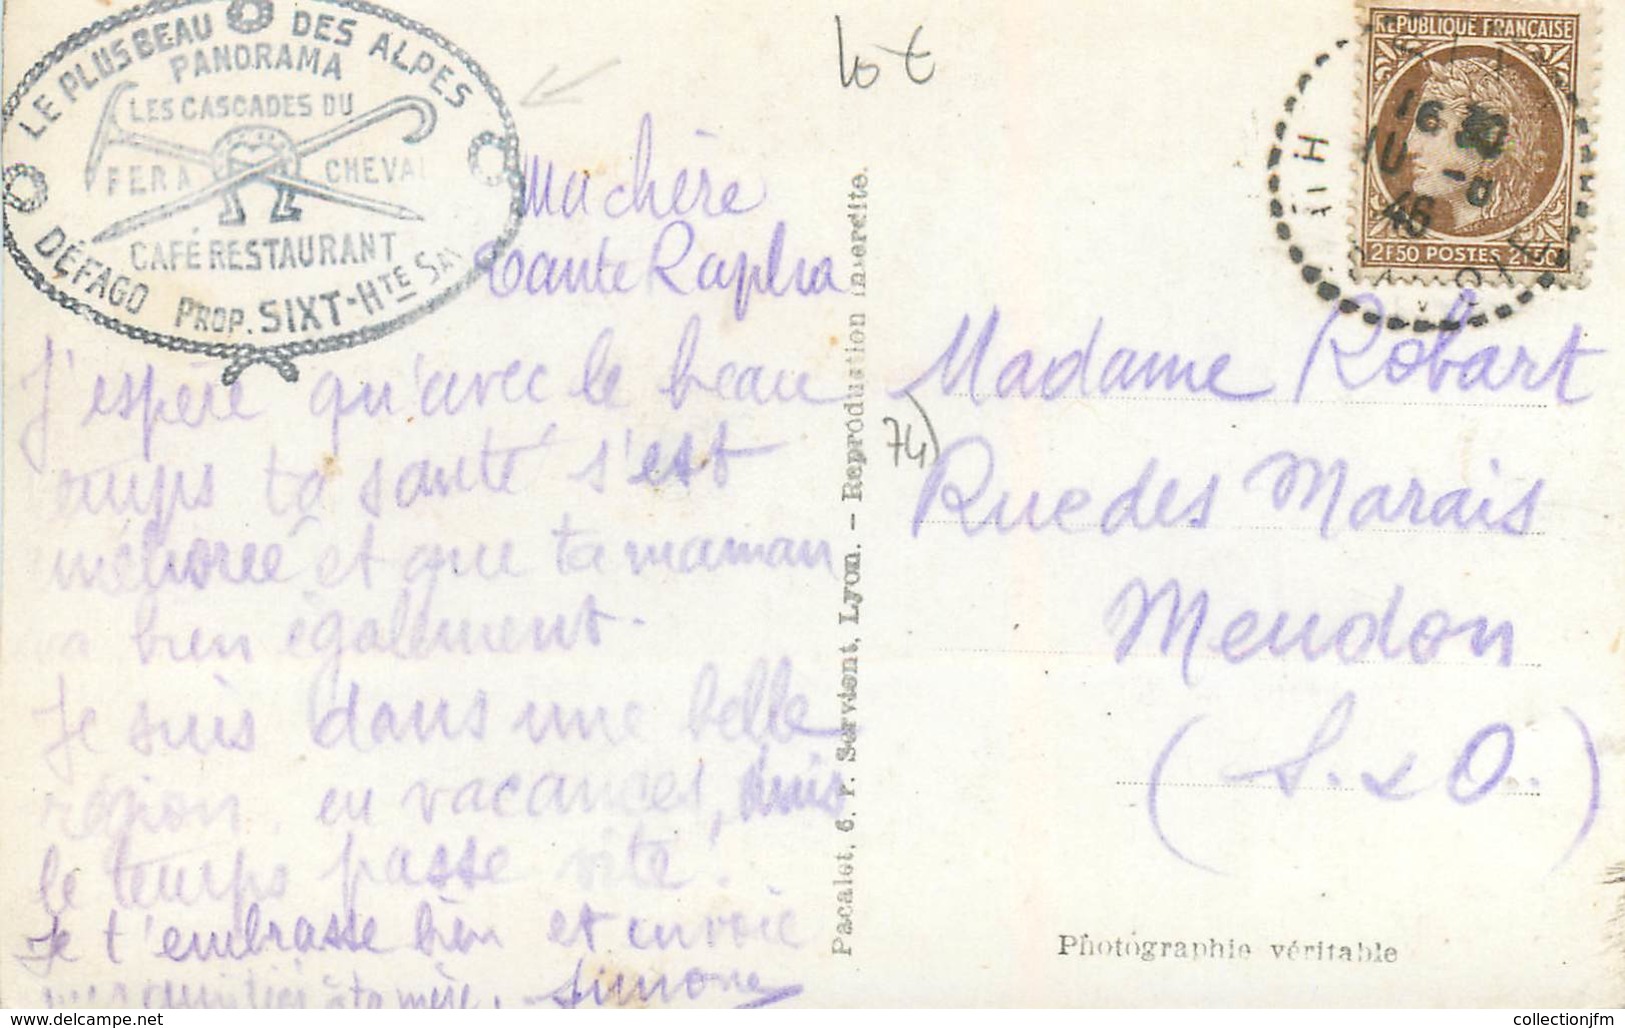 LE PLUS BEAU
PANORAMA
DES ALPES
LES CASCADES DU
FER A CHEVAL
CAFÉ RESTAURANT
DÉFAGO PROP. SIXT-HTE SAV
10 €
Ma chère
Tante Rapha
J'espère qu'avec le beau
temps ta santé s'est
méliorée et que ta maman
va bien également.
Je suis dans une belle
région, en vacances, mais
le temps passe vite!
Je t'embrasse bien et envoie
mes amitiés à ta mère. Simone
Pacalet, 6, r. Servient, Lyon. – Reproduction interdite.
REPUBLIQUE FRANÇAISE
2F50 POSTES 2F50
16 30
10 -8
46
Madame Robart
74)
Rue des Marais
Meudon
(S. & O.)
Photographie véritable
www.delcampe.net
collectionjfm